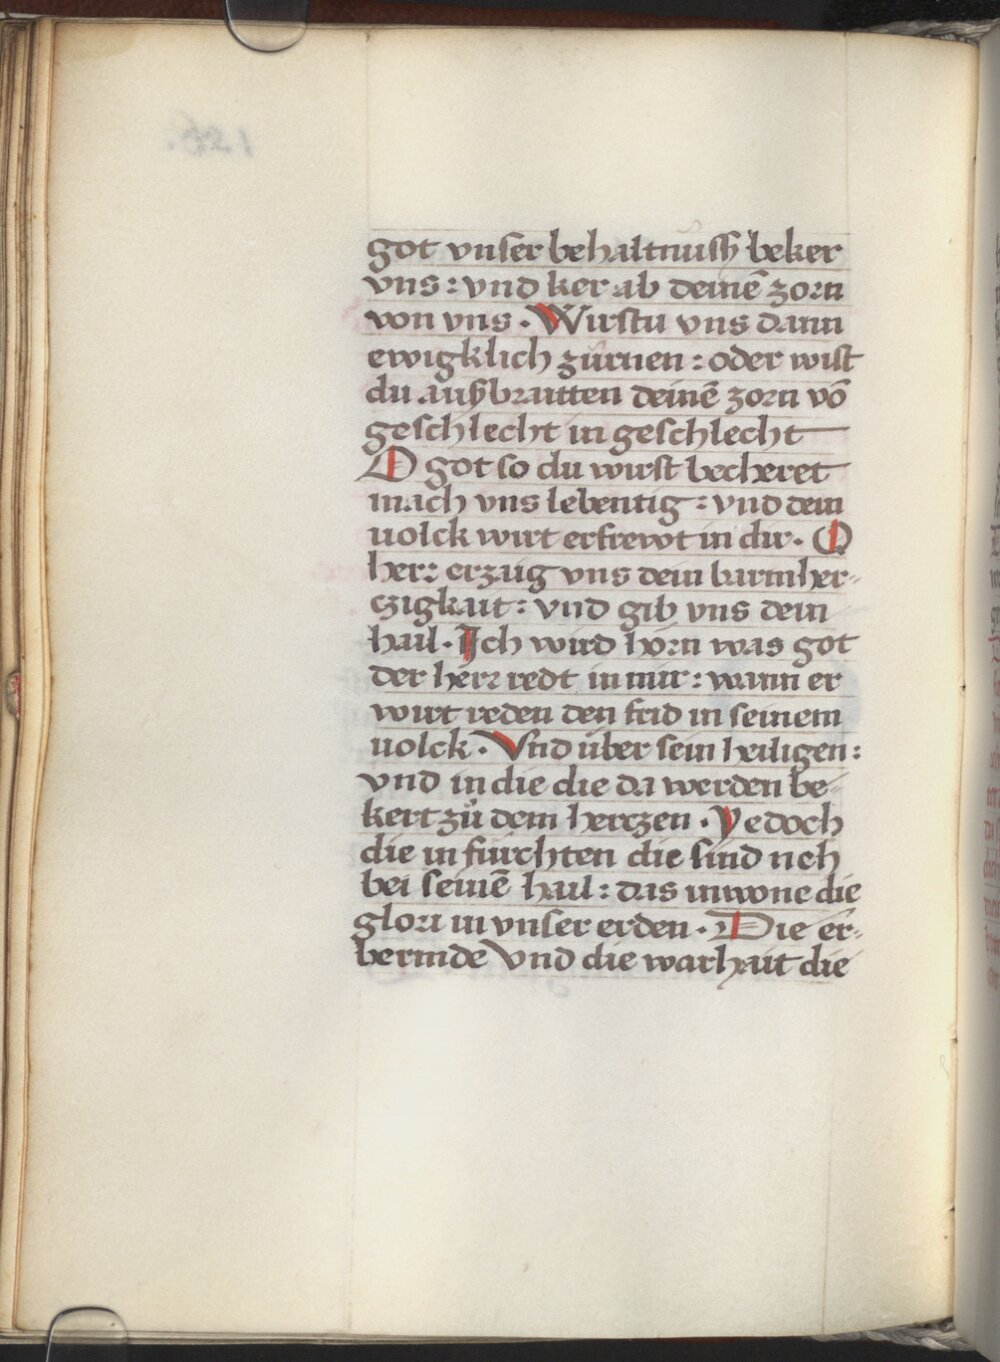 got vnser behaltnuß beker
vns : vnd ker ab deinē zorn
von vns . Wirstu vns dann
ewigklich zürnen : oder wist
du außbraitten deinē zorn vō
geschlecht in geschlecht
O got so du wirst becheret
mach vns lebentig : vnd dein
uolck wirt erfrewt in dir . O
herr erzaig vns dein barmher-
czigkait : vnd gib vns dein
hail . Ich wird hörn was got
der herr redt in mir : wann er
wirt reden den frid in seinem
uolck . Vnd über sein heiligen :
vnd in die die da werden be-
kert zů dem herczen . Yedoch
die in fürchten die sind neh
bei seinē hail : das inwone die
glori in vnser erden . Die er-
bermde Vnd die warhait die